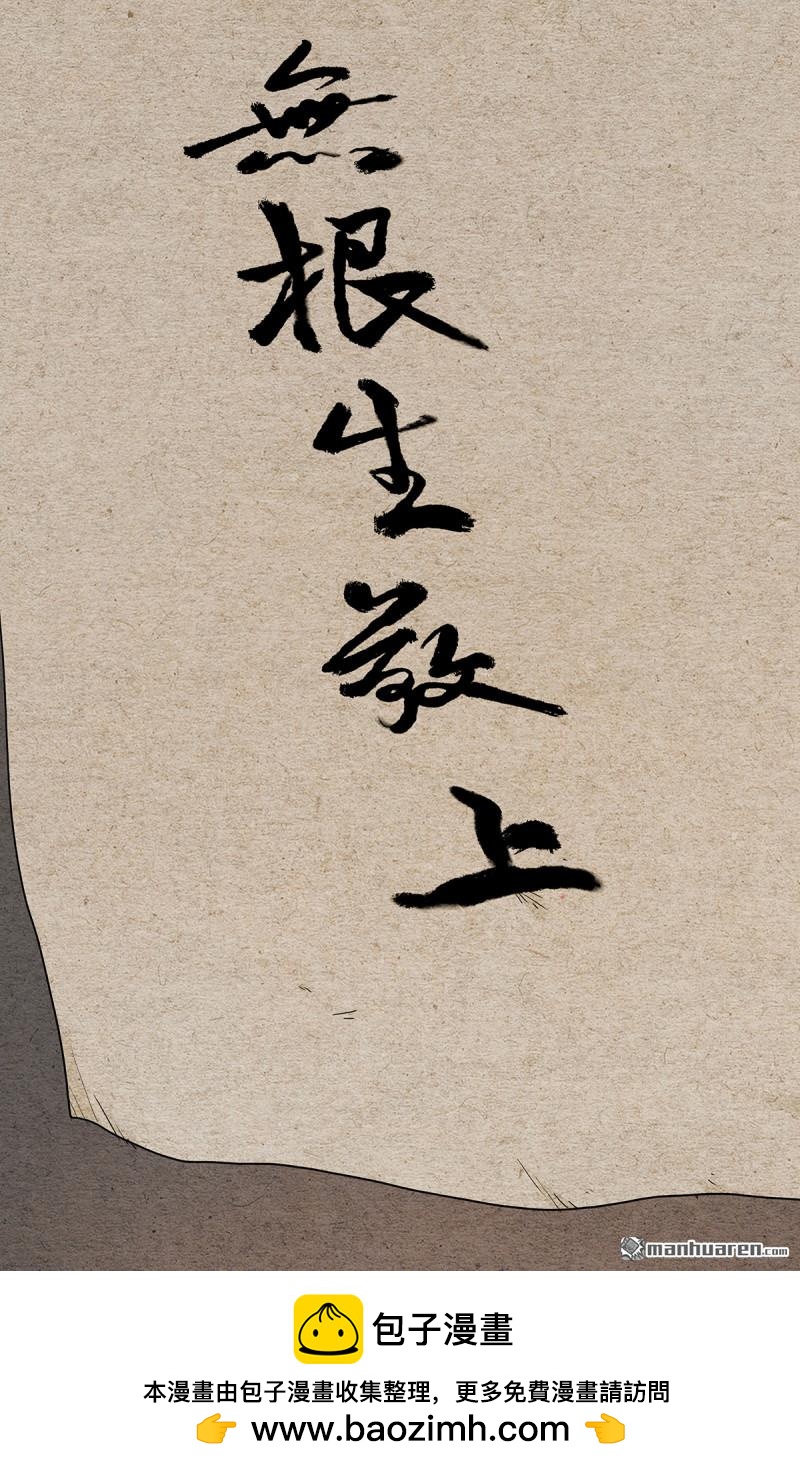 無根生敬上
manhuaren.com
包子漫畫
本漫畫由包子漫畫收集整理，更多免費漫畫請訪問
👉 www.baozimh.com 👈